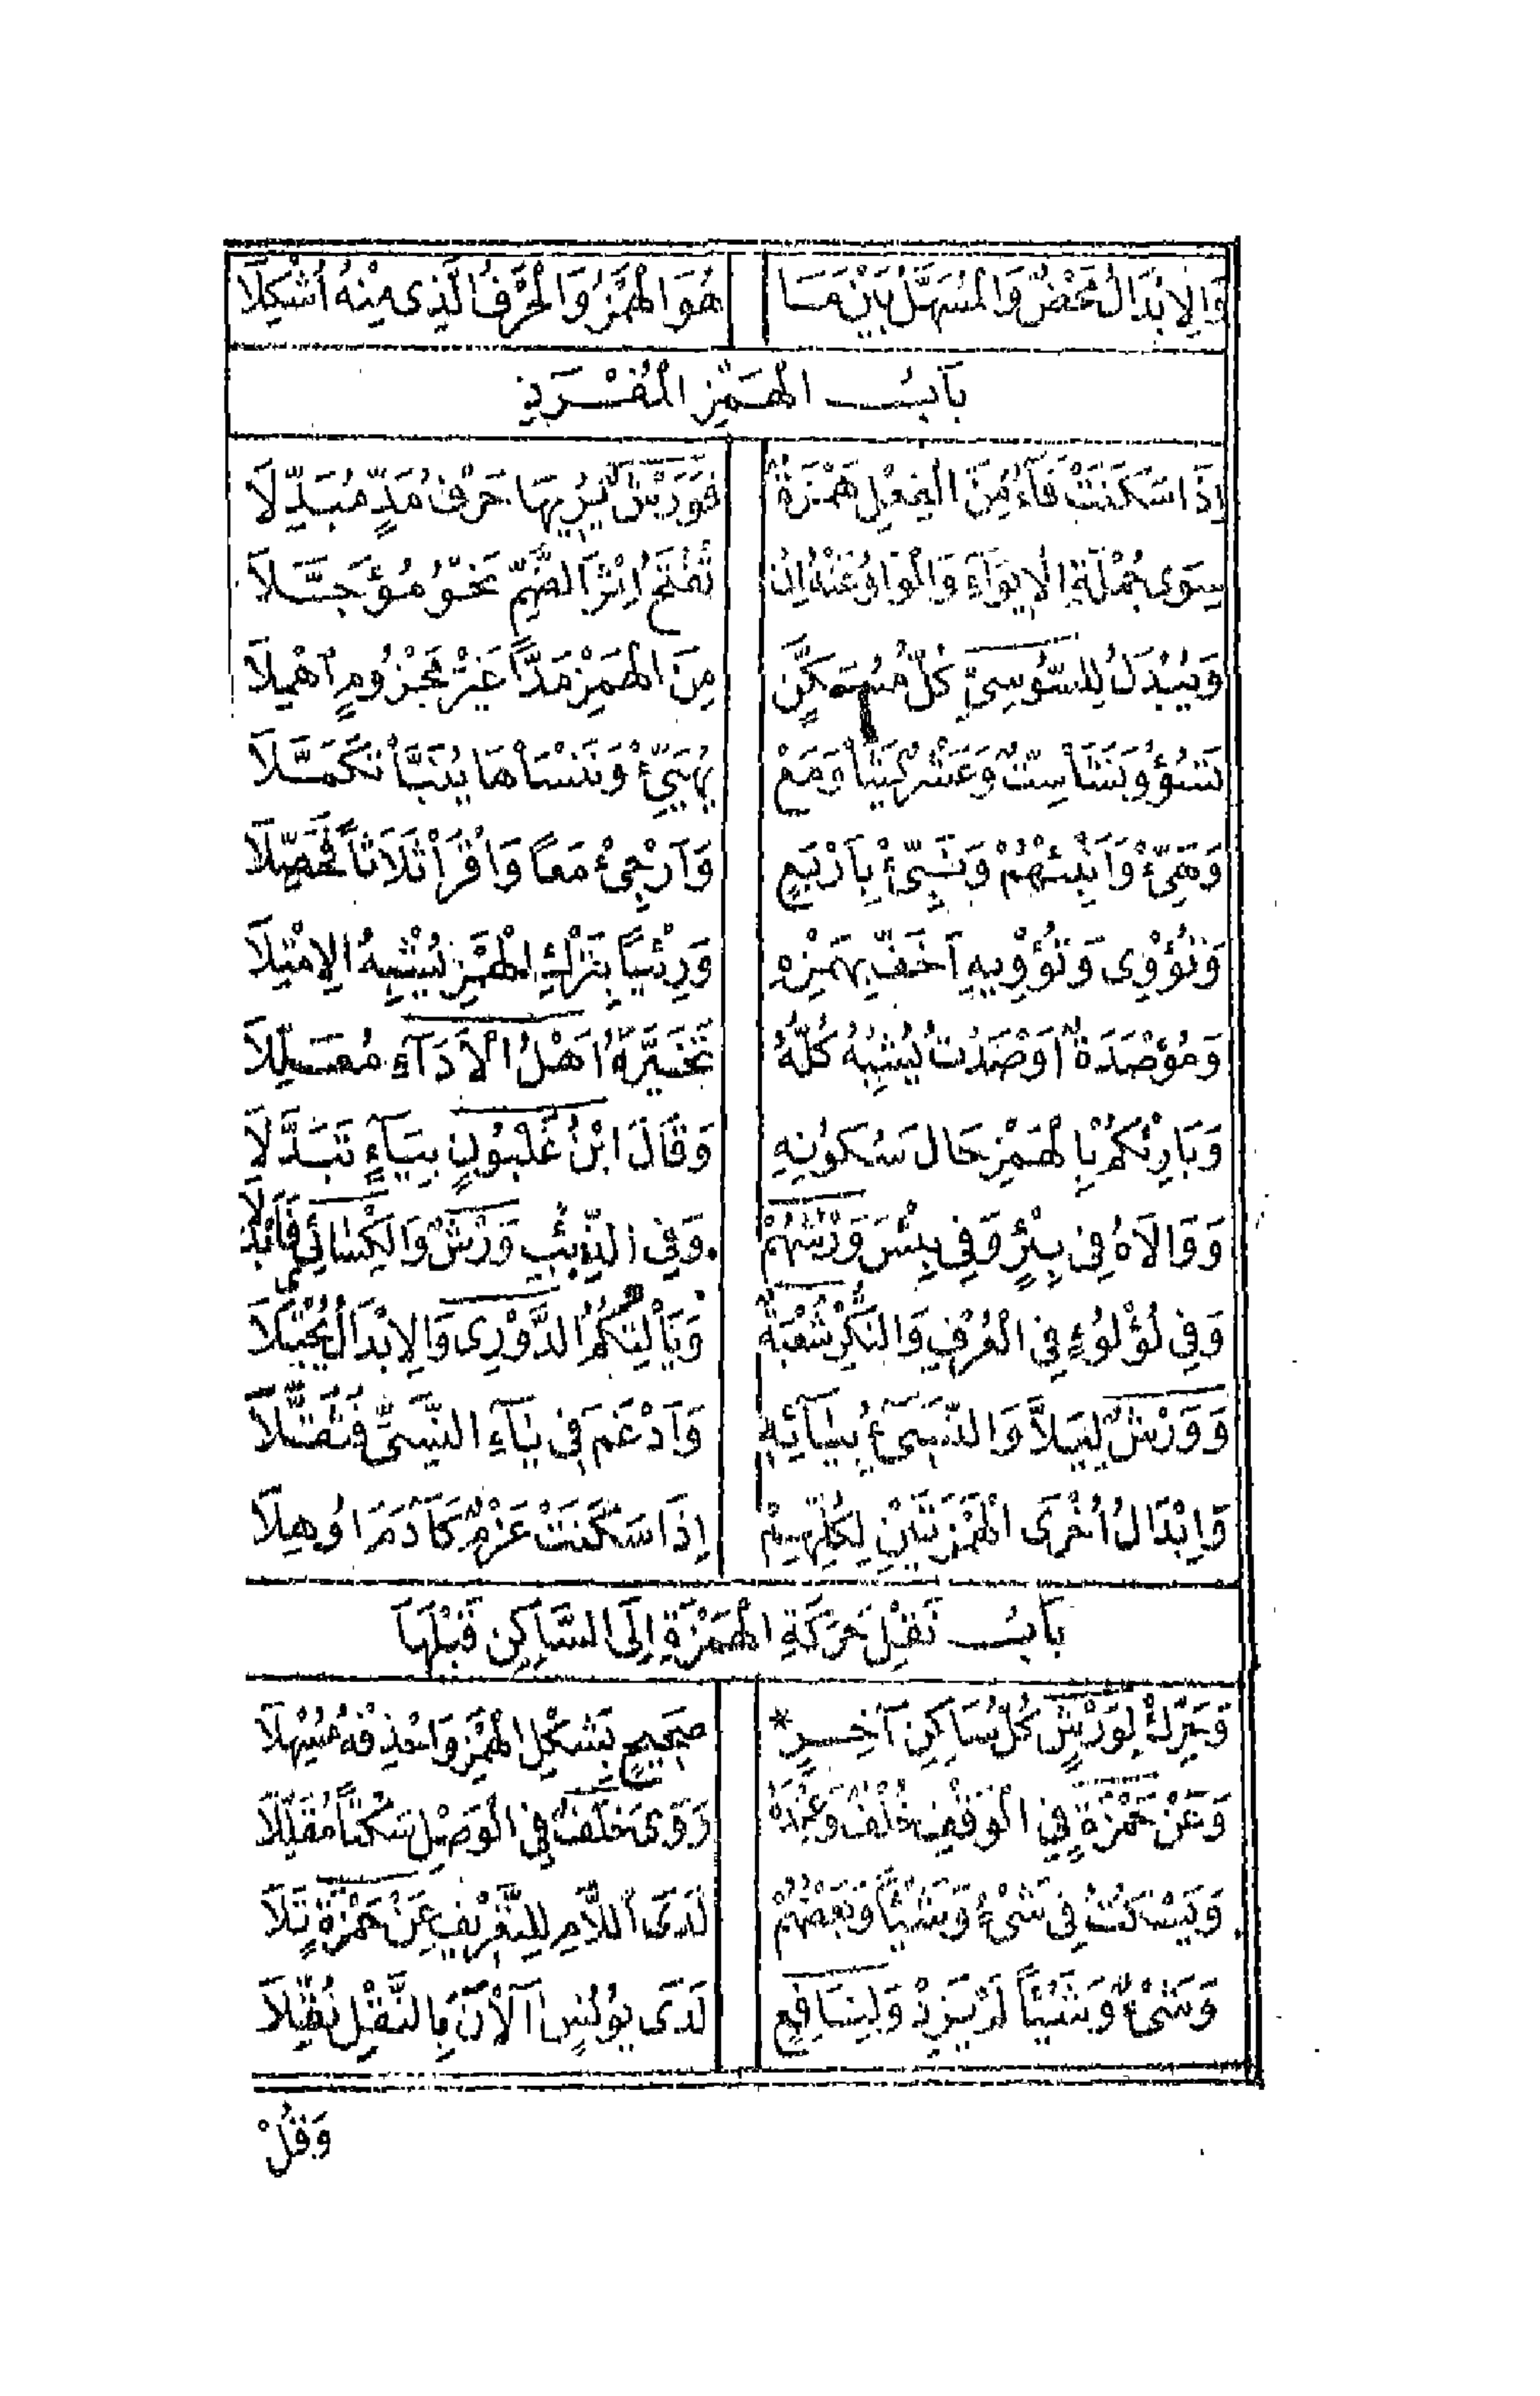 وَالِابْدَالُ مَحْضٌ وَالْمُسَهَّلُ بَيْنَ مَا هُوَ الْهَمْزُ وَالْحَرْفُ الَّذِى مِنْهُ أُشْكِلَا
بَابُ الْهَمْزِ الْمُفْرَدِ
اِذَا سَكَنَتْ فَاءً مِنَ الْفِعْلِ هَمْزَةٌ فَوَرْشٌ يُرِيهَا حَرْفَ مَدٍّ مُبَدِّلَا
سِوَى جُمْلَةِ الْاِيوَاءِ وَالْوَاوُ عَنْهُ اِنْ تَفَتَّحَ اِثْرَ الضَّمِّ نَحْوُ مُؤَجَّلَا
وَيُبْدَلُ لِلسُّوسِىِّ كُلُّ مُسَكَّنٍ مِنَ الْهَمْزِ مَدًّا غَيْرَ مَجْزُومٍ اهْمِلَا
تَسُؤْ وَنَشَأْ سِتٌّ وَعَشْرُ يَشَأْ وَمَعْ يُهَيِّئْ وَنَنْسَأْهَا يُنَبَّأْ تَكَمَّلَا
وَهَيِّئْ وَاَنْبِئْهُمْ وَنَبِّئْ بِاَرْبَعٍ وَاَرْجِئْ مَعًا وَاقْرَأْ ثَلَاثًا فَحَصِّلَا
وَتُؤْوِى وَتُؤْوِيهِ اَخَفُّ بِهَمْزِهِ وَرِئْيًا بِتَرْكِ الْهَمْزِ يُشْبِهُ الِامْتِلَا
وَمُؤْصَدَةٌ اَوْصَدْتُ يُشْبِهُ كُلُّهُ تَخَيَّرَهُ اَهْلُ الْاَدَاءِ مُعَلِّلَا
وَبَارِئْكُمْ بِالْهَمْزِ حَالَ سُكُونِهِ وَقَالَ ابْنُ غَلْبُونٍ بِيَاءٍ تَبَدَّلَا
وَوَالَاهُ فِى بِئْرٍ وَفِى بِئْسَ وَرْشُهُمْ وَفِى الذِّئْبِ وَرْشٌ وَالْكِسَائِى فَاَبْدَلَا
وَفِى لُؤْلُؤٍ فِى الْعُرْفِ وَالنُّكْرِ شُعْبَةٌ وَيَأْلِتْكُمُ الدُّورِى وَالِابْدَالُ يُجْتَلَا
وَوَرْشٌ لِيَلَّا وَالنَّسِىءُ بِيَائِهِ وَاَدْغَمَ فِى يَاءِ النَّسِىِّ فَثَقَّلَا
وَاِبْدَالُ اُخْرَى الْهَمْزَتَيْنِ لِكُلِّهِمْ اِذَا سَكَنَتْ عَزْمٌ كَآدَمَ اُوهِلَا
بَابُ نَقْلِ حَرَكَةِ الْهَمْزَةِ اِلَى السَّاكِنِ قَبْلَهَا
وَحَرِّكْ لِوَرْشٍ كُلَّ سَاكِنِ آخِرٍ * صَحِيحٍ بِشَكْلِ الْهَمْزِ وَاحْذِفْهُ مُسْهِلَا
وَعَنْ حَمْزَةٍ فِى الْوَقْفِ خُلْفٌ وَعِنْدَهُ رَوَى خَلَفٌ فِى الْوَصْلِ سَكْتًا مُقَلَّلَا
وَيَسْكُتُ فِى شَىْءٍ وَشَيْئًا وَبَعْضُهُمْ لَدَى اللَّامِ لِلتَّعْرِيفِ عَنْ حَمْزَةٍ تَلَا
وَشَىْءٍ وَشَيْئًا لَمْ يَزِدْ وَلِنَافِعٍ لَدَى يُونُسٍ آلْآنَ بِالنَّقْلِ نُقِّلَا
وَقُلْ